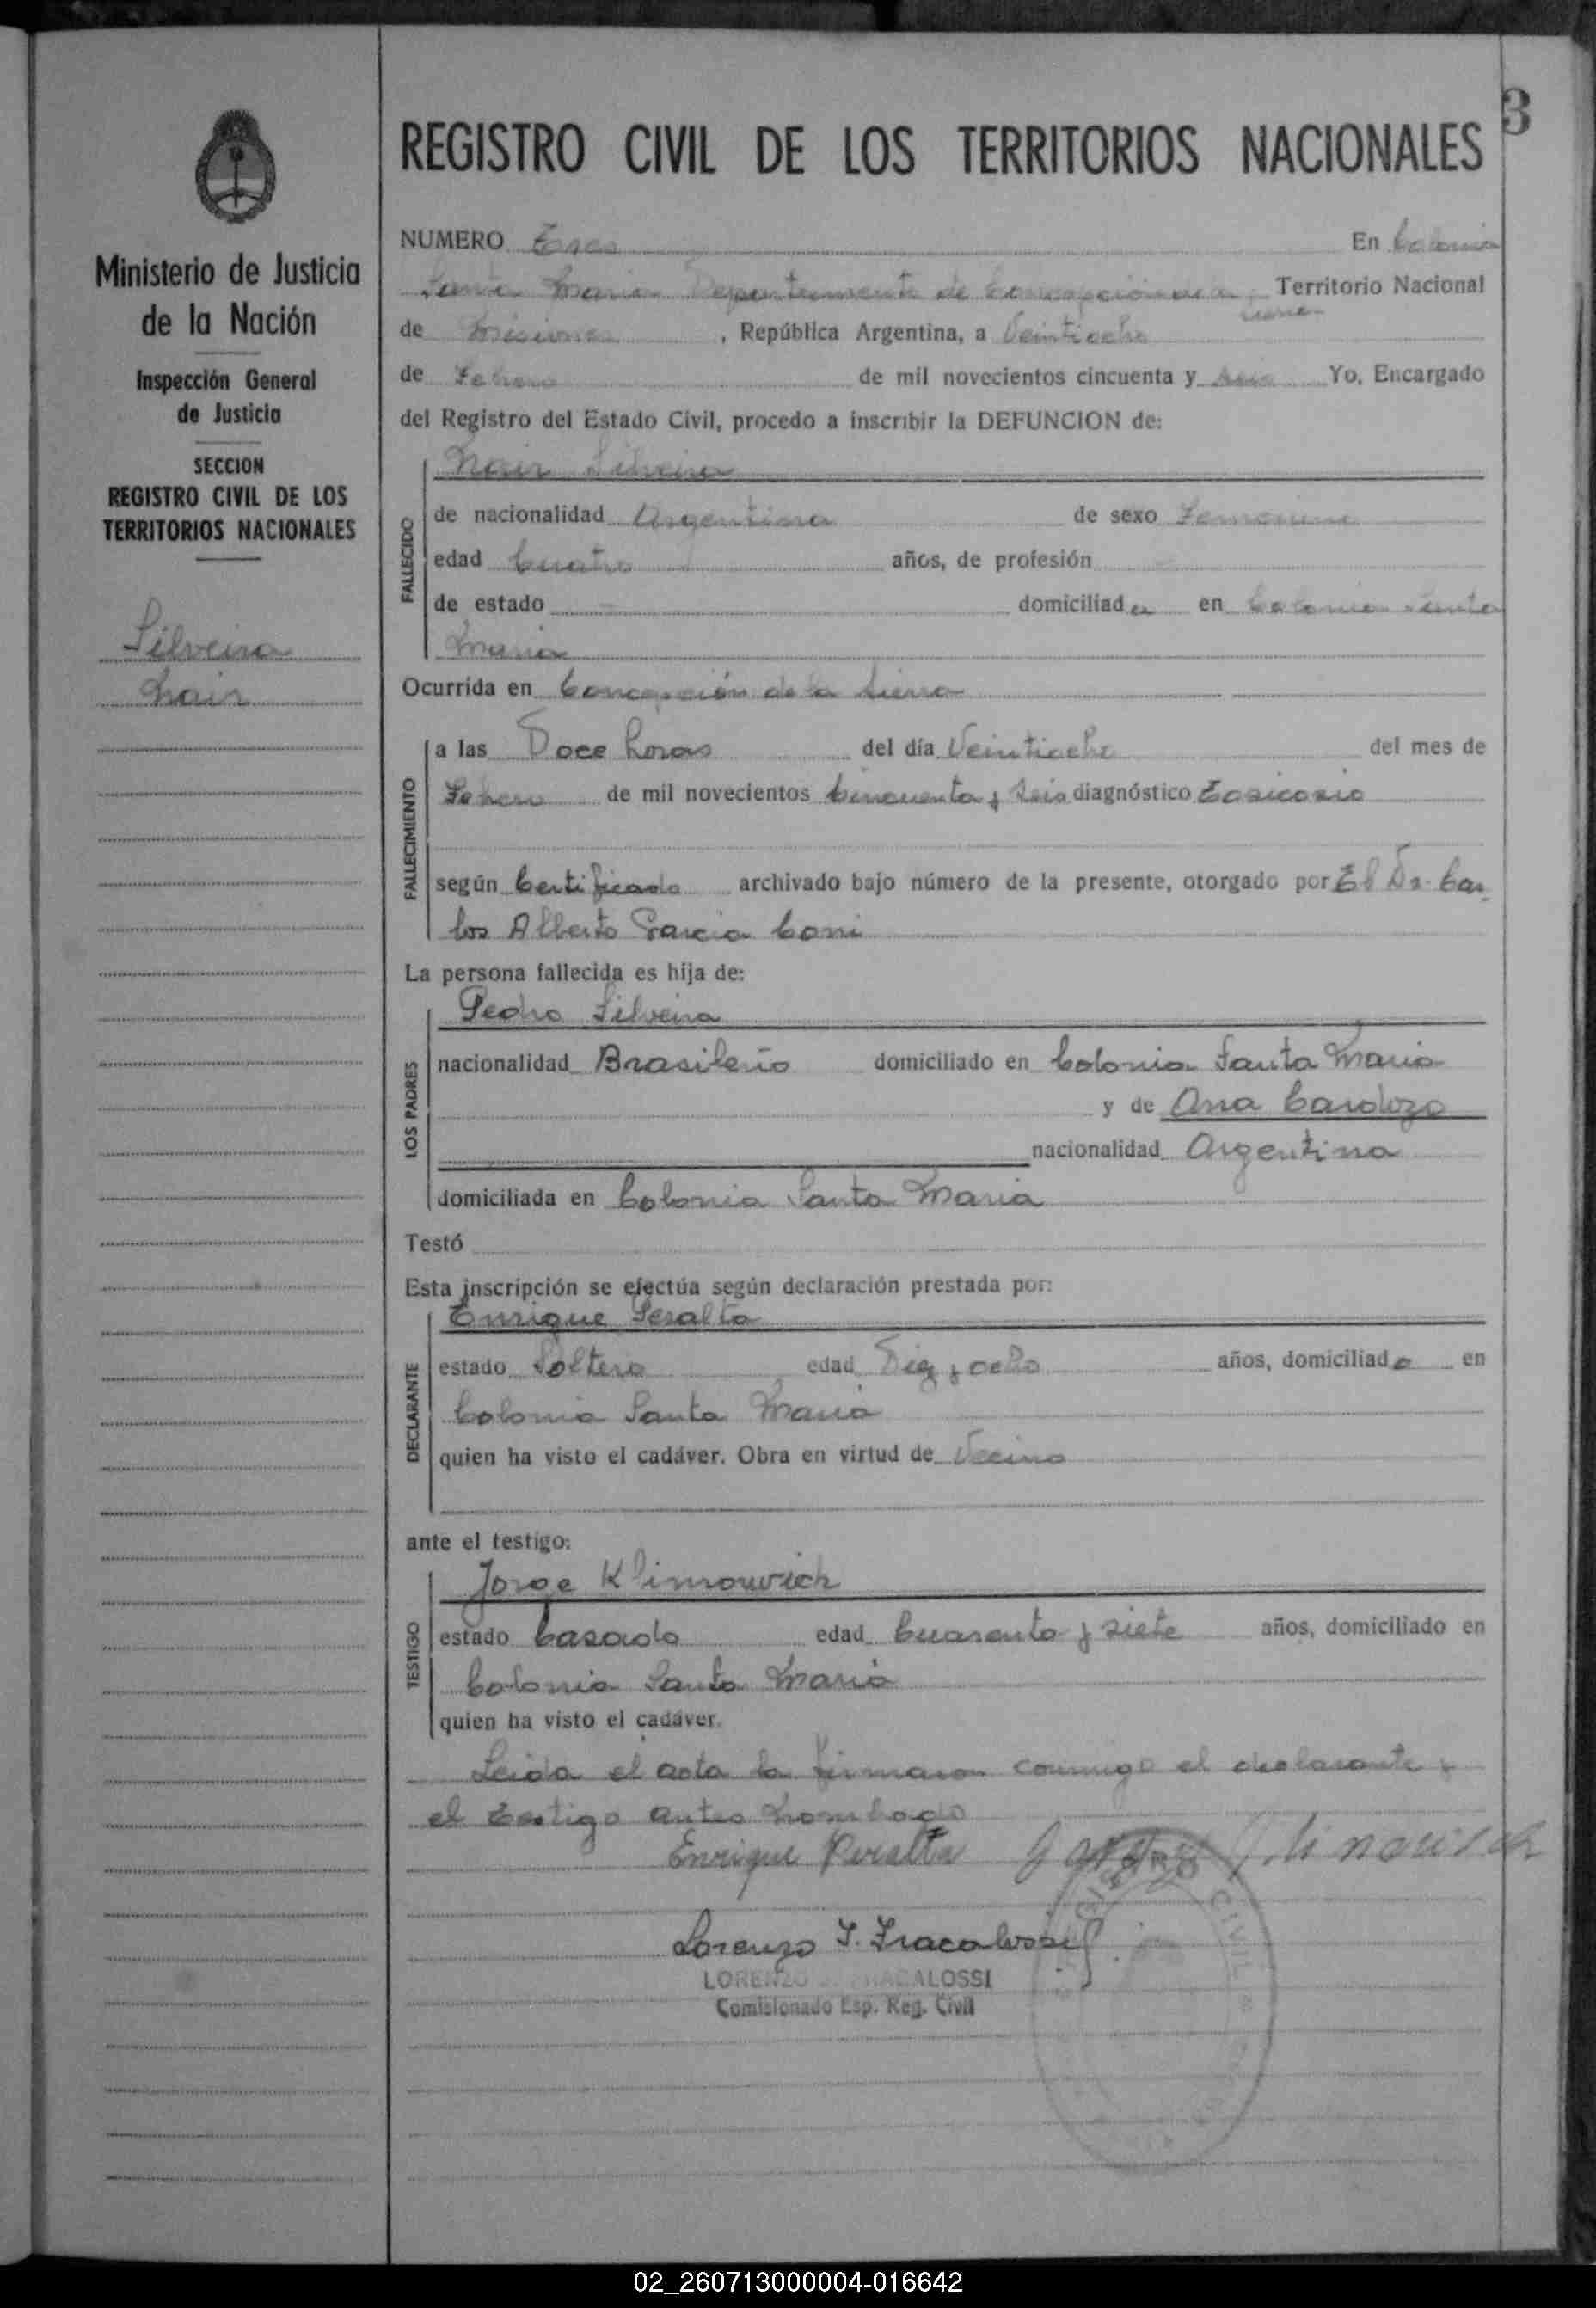 3
REGISTRO CIVIL DE LOS TERRITORIOS NACIONALES
Ministerio de Justicia
de la Nación
Inspección General
de Justicia
SECCION
REGISTRO CIVIL DE LOS
TERRITORIOS NACIONALES
Silveira
Nair
NUMERO Tres En Colonia
Santa Maria Departamento de Concepción de la Territorio Nacional
Sierra
de Misiones, República Argentina, a Veintiocho
de Febrero de mil novecientos cincuenta y seis Yo, Encargado
del Registro del Estado Civil, procedo a inscribir la DEFUNCION de:
Nair Silveira
FALLECIDO
de nacionalidad Argentina de sexo Femenino
edad Cuatro años, de profesión
de estado domiciliada en Colonia Santa
Maria
Ocurrida en Concepción de la Sierra
FALLECIMIENTO
a las Doce horas del día Veintiocho del mes de
Febrero de mil novecientos Cincuenta y Seis diagnóstico Toxicosis
según Certificado archivado bajo número de la presente, otorgado por El Dr. Car
los Alberto Garcia Coni
La persona fallecida es hija de:
LOS PADRES
Pedro Silveira
nacionalidad Brasileño domiciliado en Colonia Santa Maria
y de Ana Cardozo
nacionalidad Argentina
domiciliada en Colonia Santa Maria
Testó
Esta inscripción se efectúa según declaración prestada por:
DECLARANTE
Enrique Peralta
estado Soltero edad Diez y ocho años, domiciliado en
Colonia Santa Maria
quien ha visto el cadáver. Obra en virtud de Vecino
ante el testigo:
TESTIGO
Jorge Klimowich
estado Casado edad Cuarenta y siete años, domiciliado en
Colonia Santa Maria
quien ha visto el cadáver.
Leida el acta la firmaron conmigo el declarante y
el testigo antes nombrado
Enrique Peralta
Lorenzo J. Fracalossi
LORENZO J. FRACALOSSI
Comisionado Esp. Reg. Civil
02_260713000004-016642